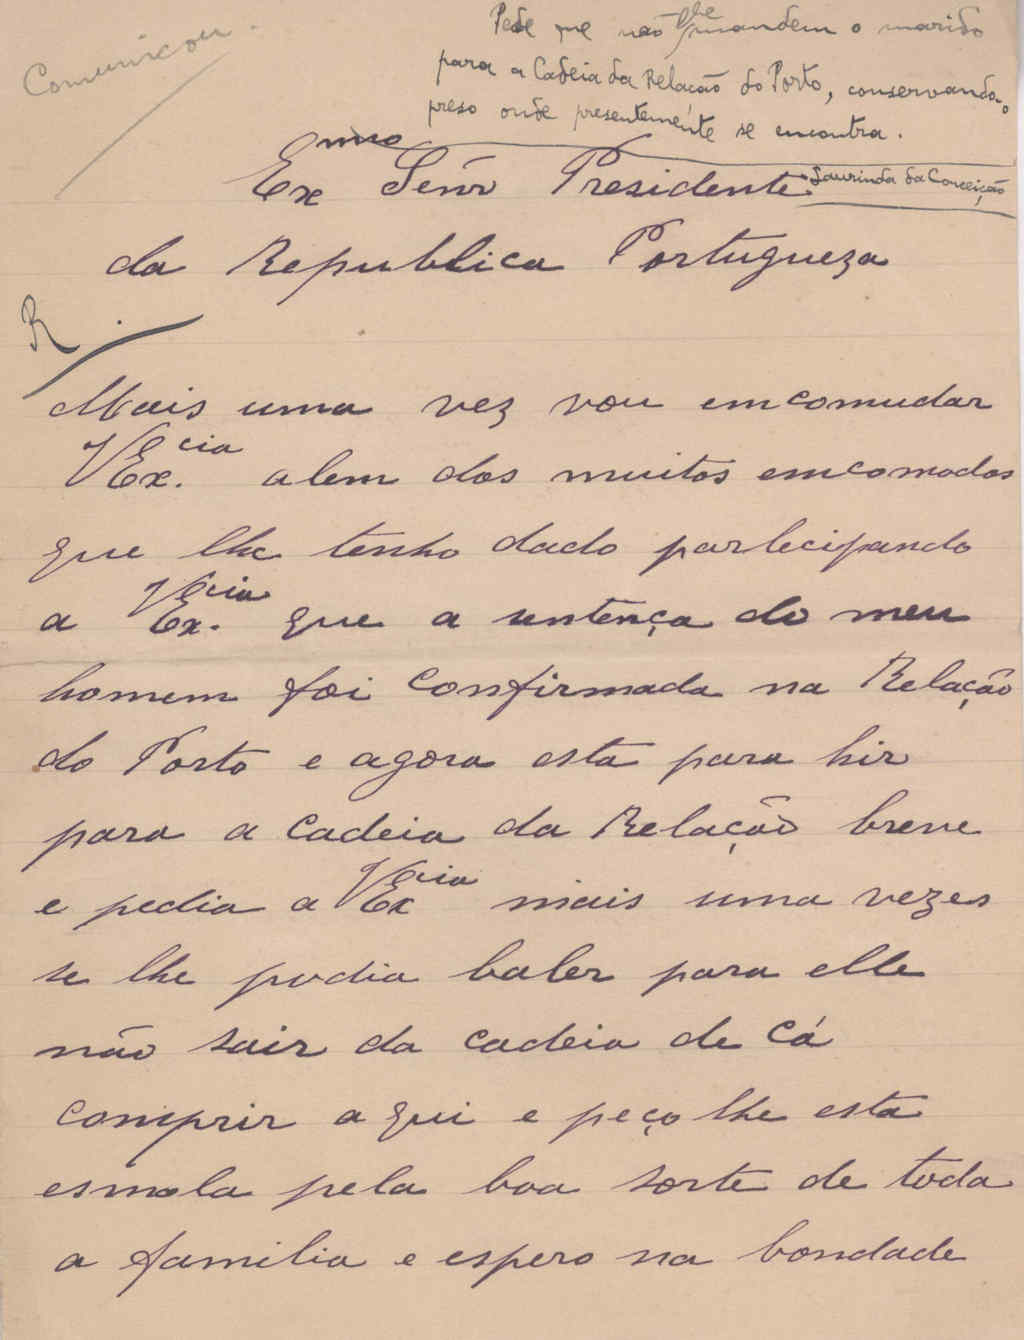 Comunicou.
Pede que não lhe mandem o marido
para a Cadeia da Relação do Porto, conservando-o
preso onde presentemente se encontra.
Laurinda da Conceição
Exmo Senr Presidente
da Republica Portugueza
R.
Mais uma vez vou emcomudar
VExcia. alem dos muitos emcomodos
que lhe tenho dado partecipando
a VExcia. que a sentença do meu
homem foi confirmada na Relação
do Porto e agora esta para hir
para a cadeia da Relação breve
e pedia a VExcia mais uma vezes
se lhe pudia baler para elle
não sair da cadeia de cá
comprir aqui e peço lhe esta
esmola pela boa sorte de toda
a familia e espero na bondade